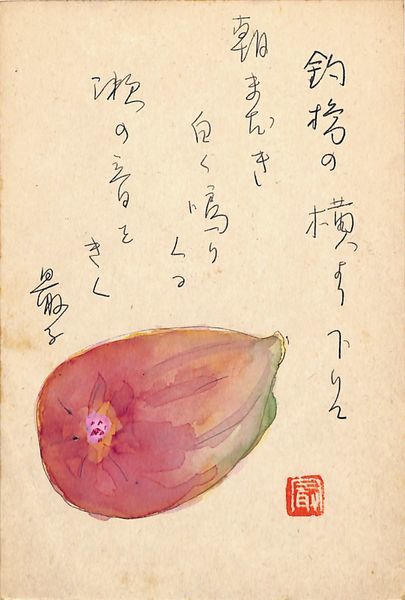 釣橋の横より下りて
朝まだき
白く鳴りくる
瀬の音を
きく
最子